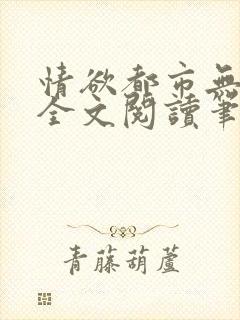 情欲都市無
全文閱讀筆
青藤葫蘆